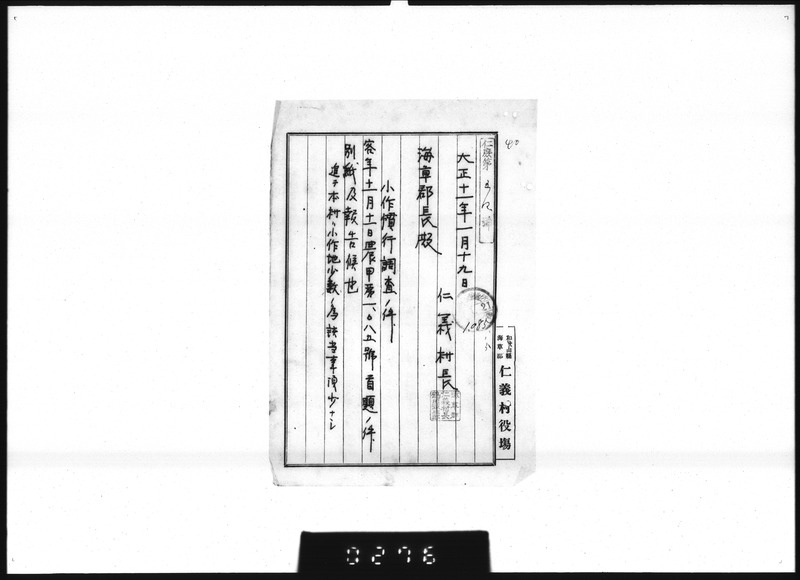 仁義第
大正十一年一月十九日
仁義村長
海草郡長殿
小作慣行調査ノ件
客年十一月十一日農甲第一、〇八五號首題ノ件
別紙及報告候也
追テ本村ハ小作地少數ノ為該当事項少ナシ
和歌山縣
海草郡
仁義村役場
1.085
0276